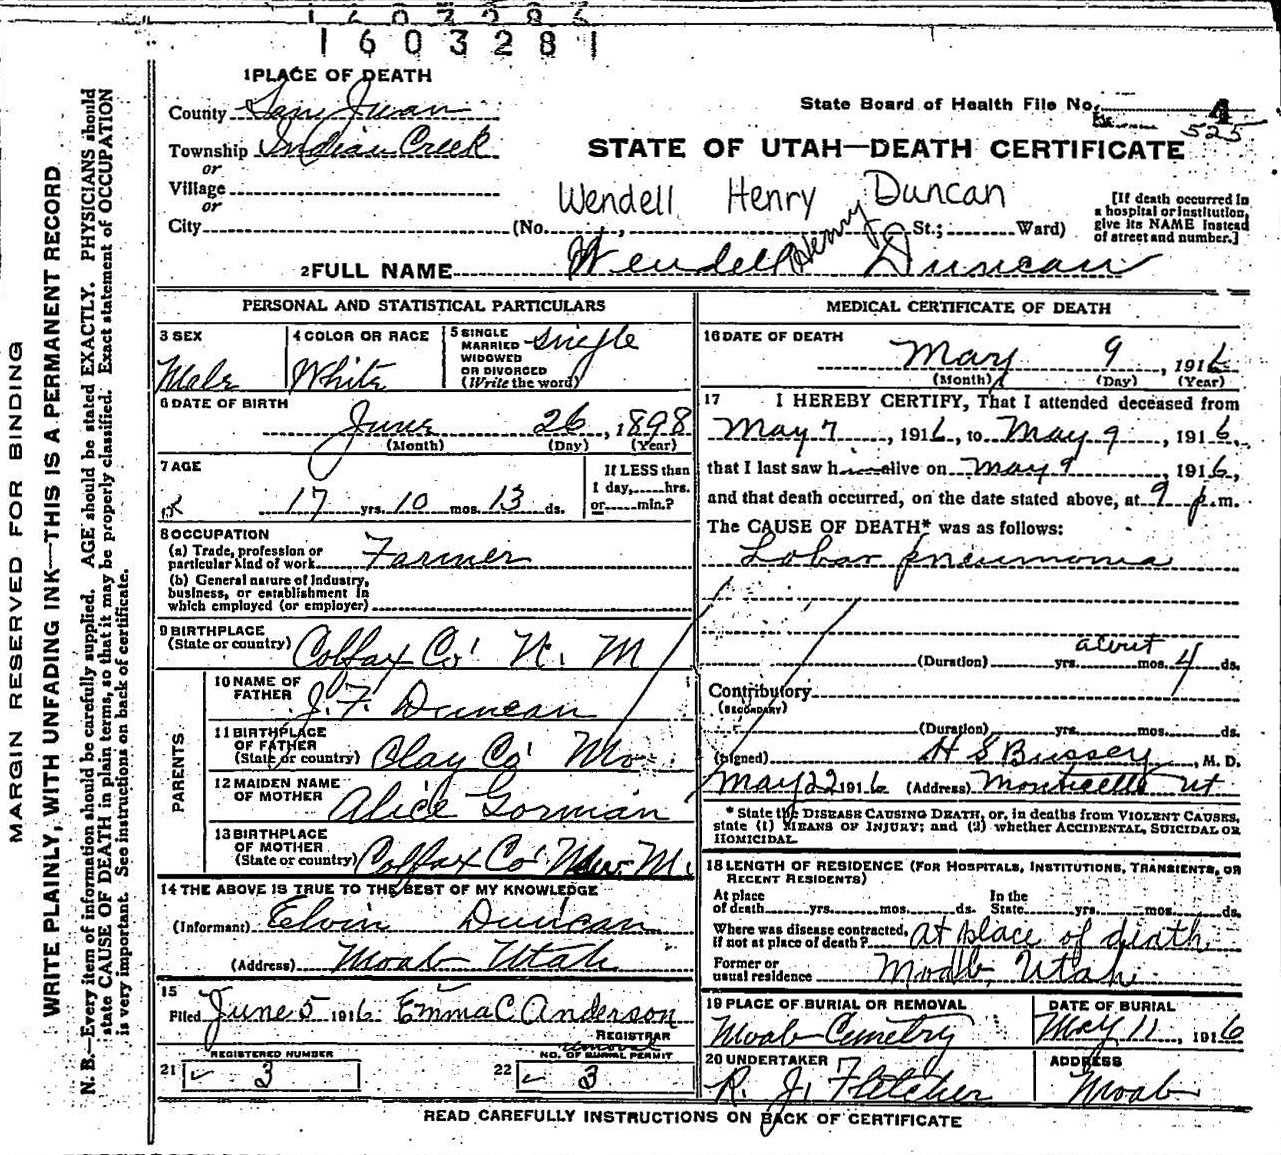 1603286
1603281
MARGIN RESERVED FOR BINDING
WRITE PLAINLY, WITH UNFADING INK—THIS IS A PERMANENT RECORD
N. B.—Every item of information should be carefully supplied. AGE should be stated EXACTLY. PHYSICIANS should
state CAUSE OF DEATH in plain terms, so that it may be properly classified. Exact statement of OCCUPATION
is very important. See instructions on back of certificate.
1 PLACE OF DEATH
County San Juan
Township Indian Creek
or
Village
or
City
State Board of Health File No. 4
525
STATE OF UTAH—DEATH CERTIFICATE
Wendell Henry Duncan
(No. , St.; Ward)
[If death occurred in
a hospital or institution,
give its NAME instead
of street and number.]
2 FULL NAME Wendell Henry Duncan
PERSONAL AND STATISTICAL PARTICULARS
3 SEX
Male
4 COLOR OR RACE
White
5 SINGLE
MARRIED
WIDOWED
OR DIVORCED
(Write the word)
Single
6 DATE OF BIRTH
June 26, 1898
(Month) (Day) (Year)
7 AGE
17 yrs. 10 mos. 13 ds.
If LESS than
1 day, hrs.
or min.?
8 OCCUPATION
(a) Trade, profession or
particular kind of work Farmer
(b) General nature of Industry,
business, or establishment in
which employed (or employer)
9 BIRTHPLACE
(State or country) Colfax Co. N. M
PARENTS
10 NAME OF
FATHER J. F. Duncan
11 BIRTHPLACE
OF FATHER
(State or country) Clay Co. Mo
12 MAIDEN NAME
OF MOTHER Alice Gorman
13 BIRTHPLACE
OF MOTHER
(State or country) Colfax Co. New M.
14 THE ABOVE IS TRUE TO THE BEST OF MY KNOWLEDGE
(Informant) Elvin Duncan
(Address) Moab Utah
15
Filed June 5 1916 Emma C Anderson
REGISTRAR
REGISTERED NUMBER
21 3
removal
NO. OF BURIAL PERMIT
22 3
MEDICAL CERTIFICATE OF DEATH
16 DATE OF DEATH
May 9, 1916
(Month) (Day) (Year)
17 I HEREBY CERTIFY, That I attended deceased from
May 7, 1916, to May 9, 1916,
that I last saw h alive on May 9, 1916,
and that death occurred, on the date stated above, at 9 p.m.
The CAUSE OF DEATH* was as follows:
Lobar pneumonia
(Duration) yrs. about mos. 4 ds.
Contributory
(SECONDARY)
(Duration) yrs. mos. ds.
(Signed) H S Bussey, M. D.
May 22 1916 (Address) Monticello Ut
* State the DISEASE CAUSING DEATH, or, in deaths from VIOLENT CAUSES,
state (1) MEANS OF INJURY; and (2) whether ACCIDENTAL, SUICIDAL OR
HOMICIDAL.
18 LENGTH OF RESIDENCE (FOR HOSPITALS, INSTITUTIONS, TRANSIENTS, OR
RECENT RESIDENTS)
At place
of death yrs. mos. ds.
In the
State yrs. mos. ds.
Where was disease contracted,
if not at place of death? At place of death
Former or
usual residence Moab, Utah
19 PLACE OF BURIAL OR REMOVAL
Moab Cemetry
DATE OF BURIAL
May 11, 1916
20 UNDERTAKER
R. J. Fletcher
ADDRESS
Moab
READ CAREFULLY INSTRUCTIONS ON BACK OF CERTIFICATE